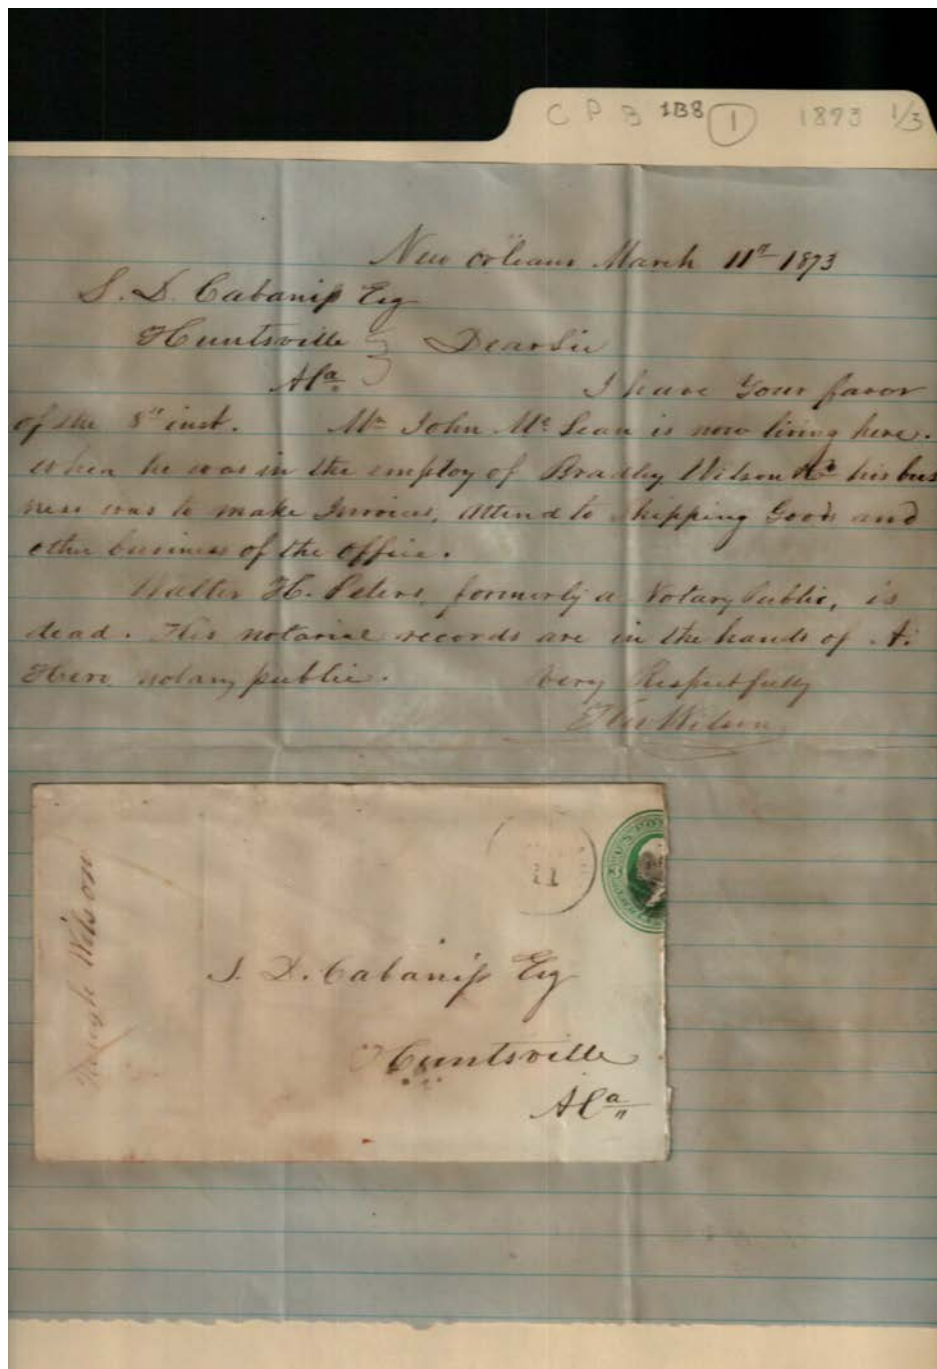 C P B 1B8 1 1873 1/3
New orleans March 11th 1873
S. D. Cabaniss Esq
Huntsville } Dear Sir
Ala I have Your favor
of the 8th inst. Mr John McLean is now living here.
when he was in the employ of Bradley Wilson & Co his busi
ness was to make Invoices, attend to shipping Goods and
other business of the office.
Walter H. Peters, formerly a Notary Public, is
dead. His notarial records are in the hands of A.
Hero notary public. Very Respectfully
Wilson
11
Wilson
S. D. Cabaniss Esq
Huntsville
Ala